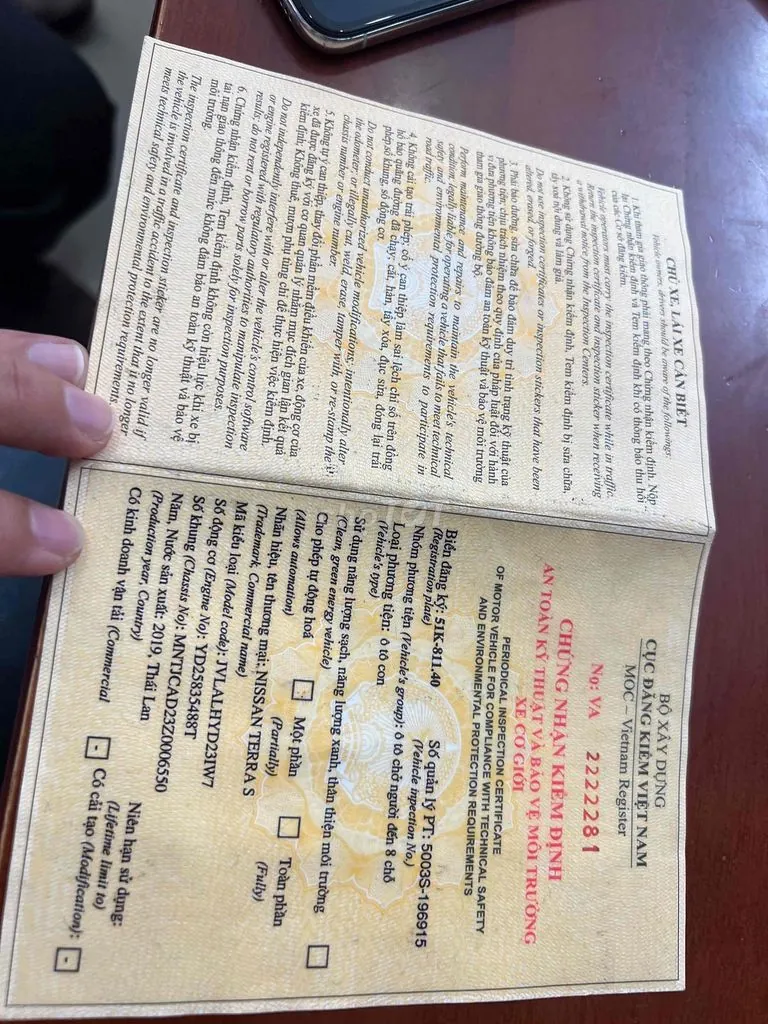 CHỦ XE, LÁI XE CẦN BIẾT
Vehicle owners, drivers should be aware of the followings:
1. Khi tham gia giao thông phải mang theo Chứng nhận kiểm định. Nộp
lại Chứng nhận kiểm định và Tem kiểm định khi có thông báo thu hồi
của các Cơ sở đăng kiểm.
Vehicle operators must carry the inspection certificate while in traffic.
Return the inspection certificate and inspection sticker when receiving
a withdrawal notice from the Inspection Centers.
2. Không sử dụng Chứng nhận kiểm định, Tem kiểm định bị sửa chữa,
tẩy xóa nội dung và làm giả.
Do not use inspection certificates or inspection stickers that have been
altered, erased, or forged.
3. Phải bảo dưỡng, sửa chữa để bảo đảm duy trì tình trạng kỹ thuật của
phương tiện; chịu trách nhiệm theo quy định của pháp luật đối với hành
vi đưa phương tiện không bảo đảm an toàn kỹ thuật và bảo vệ môi trường
tham gia giao thông đường bộ.
Perform maintenance and repairs to maintain the vehicle's technical
condition; legally liable for operating a vehicle that fails to meet technical
safety and environmental protection requirements to participate in
road traffic.
4. Không cải tạo trái phép; cố ý can thiệp làm sai lệch chỉ số trên đồng
hồ báo quãng đường đã chạy; cắt, hàn, tẩy xóa, đục sửa, đóng lại trái
phép số khung, số động cơ.
Do not conduct unauthorized vehicle modifications; intentionally alter
the odometer; or illegally cut, weld, erase, tamper with, or re-stamp the
chassis number or engine number.
5. Không tự ý can thiệp, thay đổi phần mềm điều khiển của xe, động cơ của
xe đã được đăng ký với cơ quan quản lý nhằm mục đích gian lận kết quả
kiểm định; Không thuê, mượn phụ tùng chỉ để thực hiện việc kiểm định.
Do not independently interfere with or alter the vehicle's control software
or engine registered with regulatory authorities to manipulate inspection
results; do not rent or borrow parts solely for inspection purposes.
6. Chứng nhận kiểm định, Tem kiểm định không còn hiệu lực khi xe bị
tai nạn giao thông đến mức không đảm bảo an toàn kỹ thuật và bảo vệ
môi trường.
The inspection certificate and inspection sticker are no longer valid if
the vehicle is involved in a traffic accident to the extent that it no longer
meets technical safety and environmental protection requirements.
BỘ XÂY DỰNG
CỤC ĐĂNG KIỂM VIỆT NAM
MOC – Vietnam Register
No: VA 2222281
CHỨNG NHẬN KIỂM ĐỊNH
AN TOÀN KỸ THUẬT VÀ BẢO VỆ MÔI TRƯỜNG
XE CƠ GIỚI
PERIODICAL INSPECTION CERTIFICATE
OF MOTOR VEHICLE FOR COMPLIANCE WITH TECHNICAL SAFETY
AND ENVIRONMENTAL PROTECTION REQUIREMENTS
Biển đăng ký: 51K-811.40 Số quản lý PT: 5003S-196915
(Registration plate) (Vehicle inpection No.)
Nhóm phương tiện (Vehicle's group): ô tô chở người đến 8 chỗ
Loại phương tiện: ô tô con
(Vehicle's type)
Sử dụng năng lượng sạch, năng lượng xanh, thân thiện môi trường
(Clean, green energy vehicle)
Cho phép tự động hoá Một phần Toàn phần
(Allows automation) (Partially) (Fully)
Nhãn hiệu, tên thương mại: NISSAN TERRA S
(Trademark, Commercial name)
Mã kiểu loại (Model code): JVLALHYD23IW7
Số động cơ (Engine No): YD25835488T
Số khung (Chassis No): MNTJCAD23Z0006550
Năm, Nước sản xuất: 2019, Thái Lan Niên hạn sử dụng:
(Production year, Country) (Lifetime limit to)
Có kinh doanh vận tải (Commercial - Có cải tạo (Modification): -